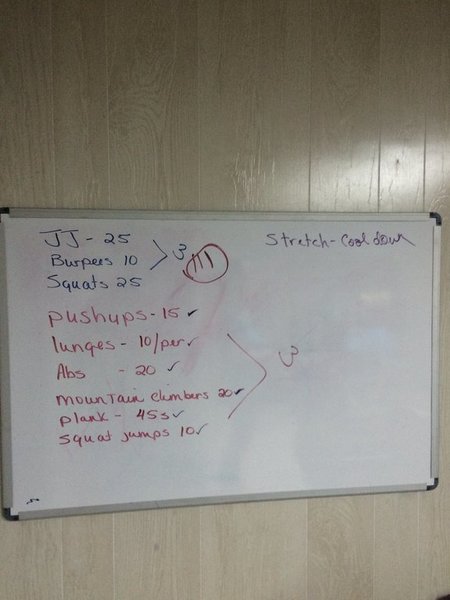 JJ - 25
Burpees 10
Squats 25
3
III
Stretch - Cool down
pushups - 15 ✓
lunges - 10/per ✓
Abs - 20 ✓
mountain climbers 20 ✓
plank - 45s ✓
squat jumps 10 ✓
3